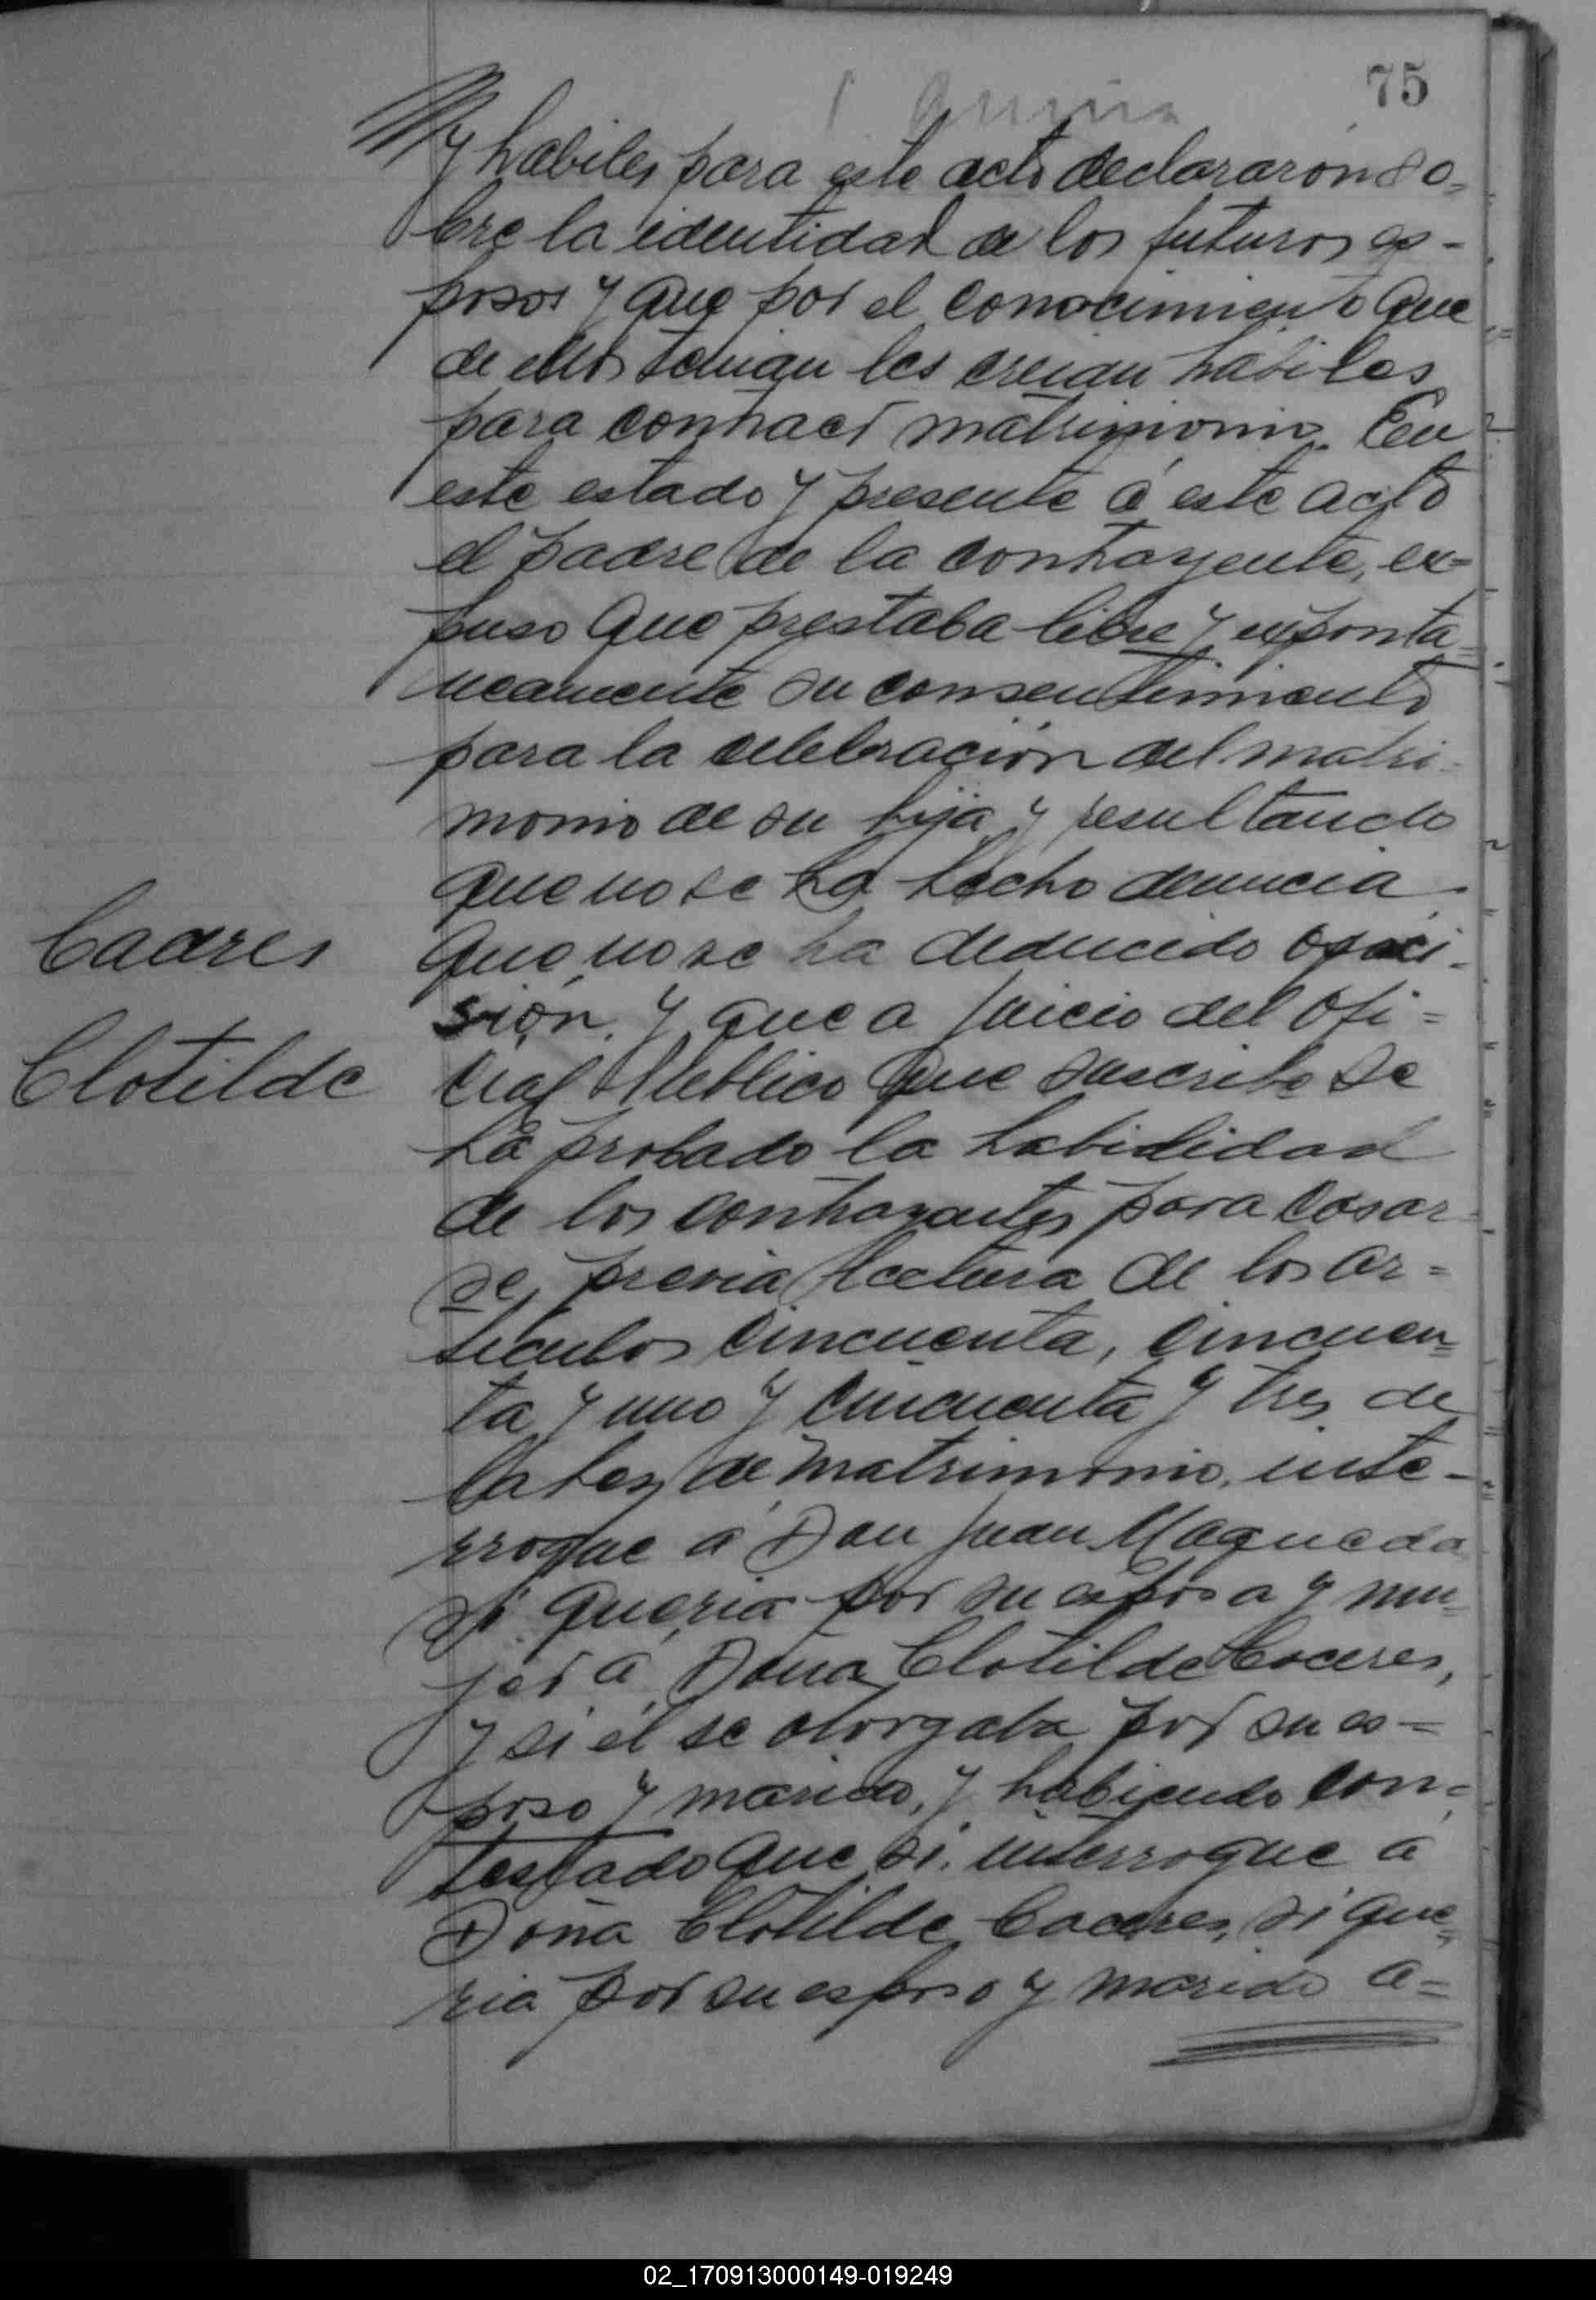 75
y habiles para este acto declararon so=
bre la identidad de los futuros es-
posos y que por el conocimiento que
de ellos tenian los creian habiles
para contraer matrimonio. En
este estado y presente á este acto
el padre de la contrayente, ex=
puso que prestaba libre y esponta=
neamente su consentimiento
para la celebración del matri-
monio de su hija y resultando
que no se ha hecho denuncia
Caares
que no se ha deducido oposi-
sión, y que a juicio del Ofi=
Clotilde
cial Publico que suscribe se
ha probado la habididad
de los contrayentes para casar-
se, previa lectura de los ar=
ticulos cincuenta, cincuen=
ta y uno y cincuenta y tres de
la Ley de Matrimonio, inte-
rrogue a Don Juan Maqueda
si queria por su esposa y mu-
jer a Doña Clotilde Caceres,
y si el se otorgaba por su es=
poso y marido, y habiendo con=
testado que si, interrogue a
Doña Clotilde Caceres, si que=
ria por su esposo y marido a=
02_170913000149-019249